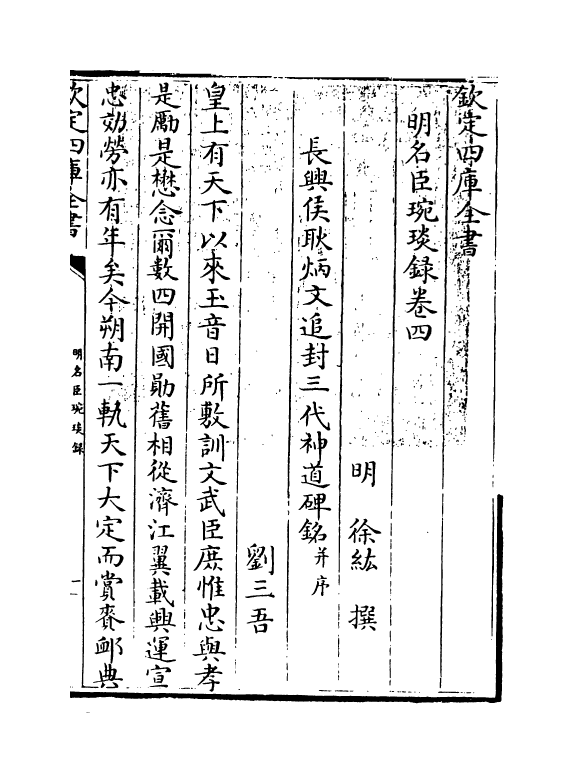 欽定四庫全書
明名臣琬琰録卷四
明 徐紘 撰
長興侯耿炳文追封三代神道碑銘并序
劉三吾
皇上有天下以來玉音日所敷訓文武臣庶惟忠與孝
是勵是懋念爾數四開國勛舊相從濟江翼載興運宣
忠効勞亦有年矣今朔南一軌天下大定而賞賚䘏典
欽定四庫全書
明名臣琬琰録
一